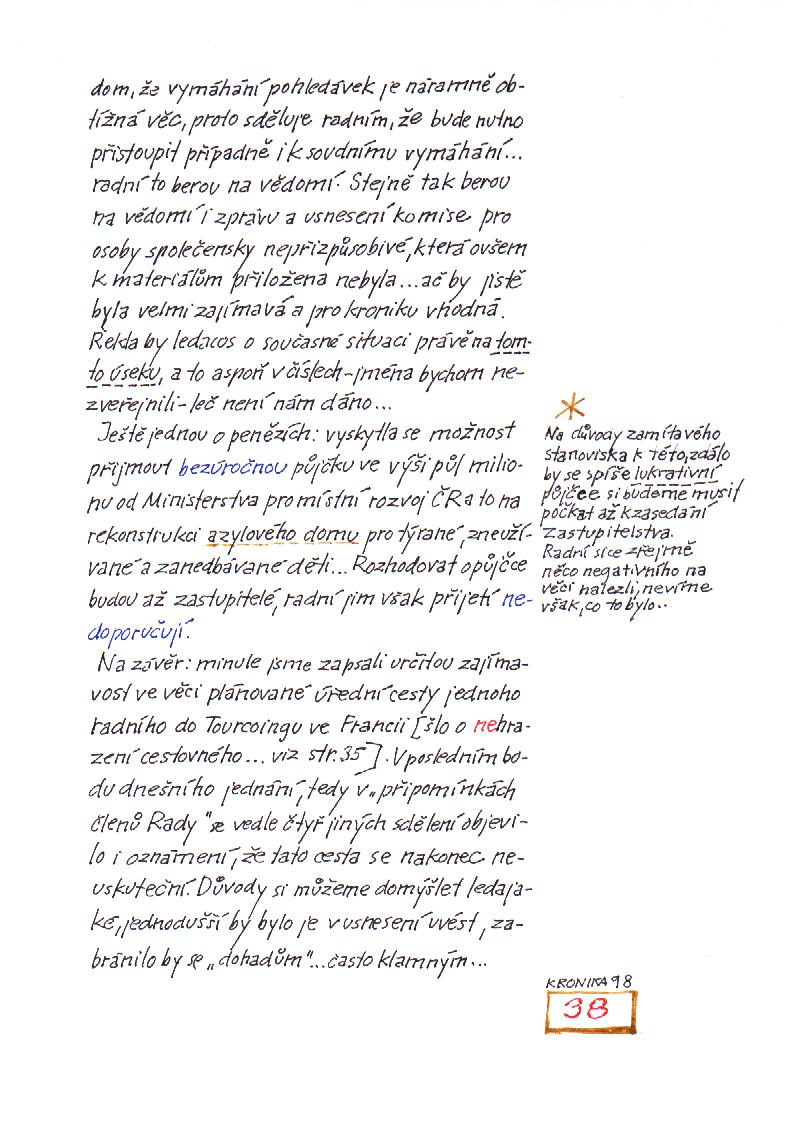 dom, že vymáhání pohledávek je náramně ob-
tížná věc, proto sděluje radním, že bude nutno
přistoupit případně i k soudnímu vymáhání...
radní to berou na vědomí. Stejně tak berou
na vědomí i zprávu a usnesení komise pro
osoby společensky nepřizpůsobivé, která ovšem
k materiálům přiložena nebyla...ač by jistě
byla velmi zajímavá a pro kroniku vhodná.
Řekla by ledacos o současné situaci právě na tom-
to úseku, a to aspoň v číslech-jména bychom ne-
zveřejnili-leč není nám dáno...
Ještě jednou o penězích: vyskytla se možnost
přijmout bezúročnou půjčku ve výši půl milio-
nu od Ministerstva pro místní rozvoj ČR a to na
rekonstrukci azylového domu pro týrané, zneuží-
vané a zanedbávané děti... Rozhodovat o půjčce
budou až zastupitelé, radní jim však přijetí ne-
doporučují.
Na závěr: minule jsme zapsali určitou zajíma-
vost ve věci plánované úřední cesty jednoho
radního do Tourcoingu ve Francii [šlo o nehra-
zení cestovného... viz str.35]. V posledním bo-
du dnešního jednání, tedy v „připomínkách
členů Rady" se vedle čtyř jiných sdělení objevi-
lo i oznámení, že tato cesta se nakonec ne-
uskuteční. Důvody si můžeme domýšlet ledaja-
ké, jednodušší by bylo je v usnesení uvést, za-
bránilo by se „dohadům"...často klamným...
*
Na důvody zamítavého
stanoviska k této, zdálo
by se spíše lukrativní
půjčce si budeme musit
počkat až k zasedání
Zastupitelstva.
Radní sice zřejmě
něco negativního na
věci nalezli, nevíme
však, co to bylo..
KRONIKA 98
38